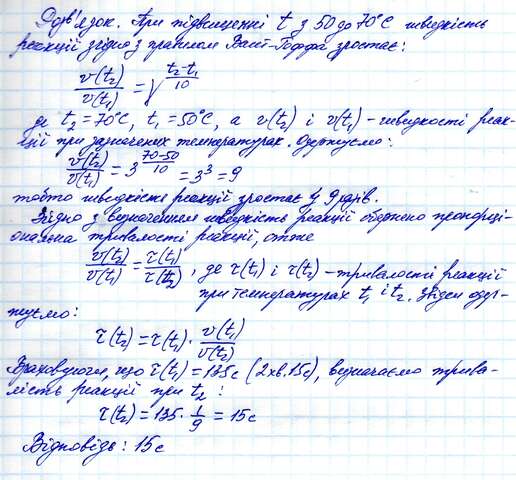 Розв'язок. При підвищенні t з 50 до 70°C швидкість
реакції згідно з правилом Вант-Гоффа зростає:
v(t₂)/v(t₁) = γ^((t₂-t₁)/10)
де t₂ = 70°C, t₁ = 50°C, а v(t₂) і v(t₁) - швидкості реак-
ції при зазначених температурах. Одержуємо:
v(t₂)/v(t₁) = 3^((70-50)/10) = 3³ = 9
тобто швидкість реакції зростає у 9 разів.
Згідно з визначенням швидкість реакції обернено пропорці-
ональна тривалості реакції, отже
v(t₂)/v(t₁) = τ(t₁)/τ(t₂), де τ(t₁) і τ(t₂) - тривалості реакції
при температурах t₁ і t₂. Звідси одер-
жуємо:
τ(t₂) = τ(t₁) · v(t₁)/v(t₂)
Враховуючи, що τ(t₁) = 135с (2хв. 15с), визначаємо трива-
лість реакції при t₂:
τ(t₂) = 135 · 1/9 = 15с
Відповідь: 15с